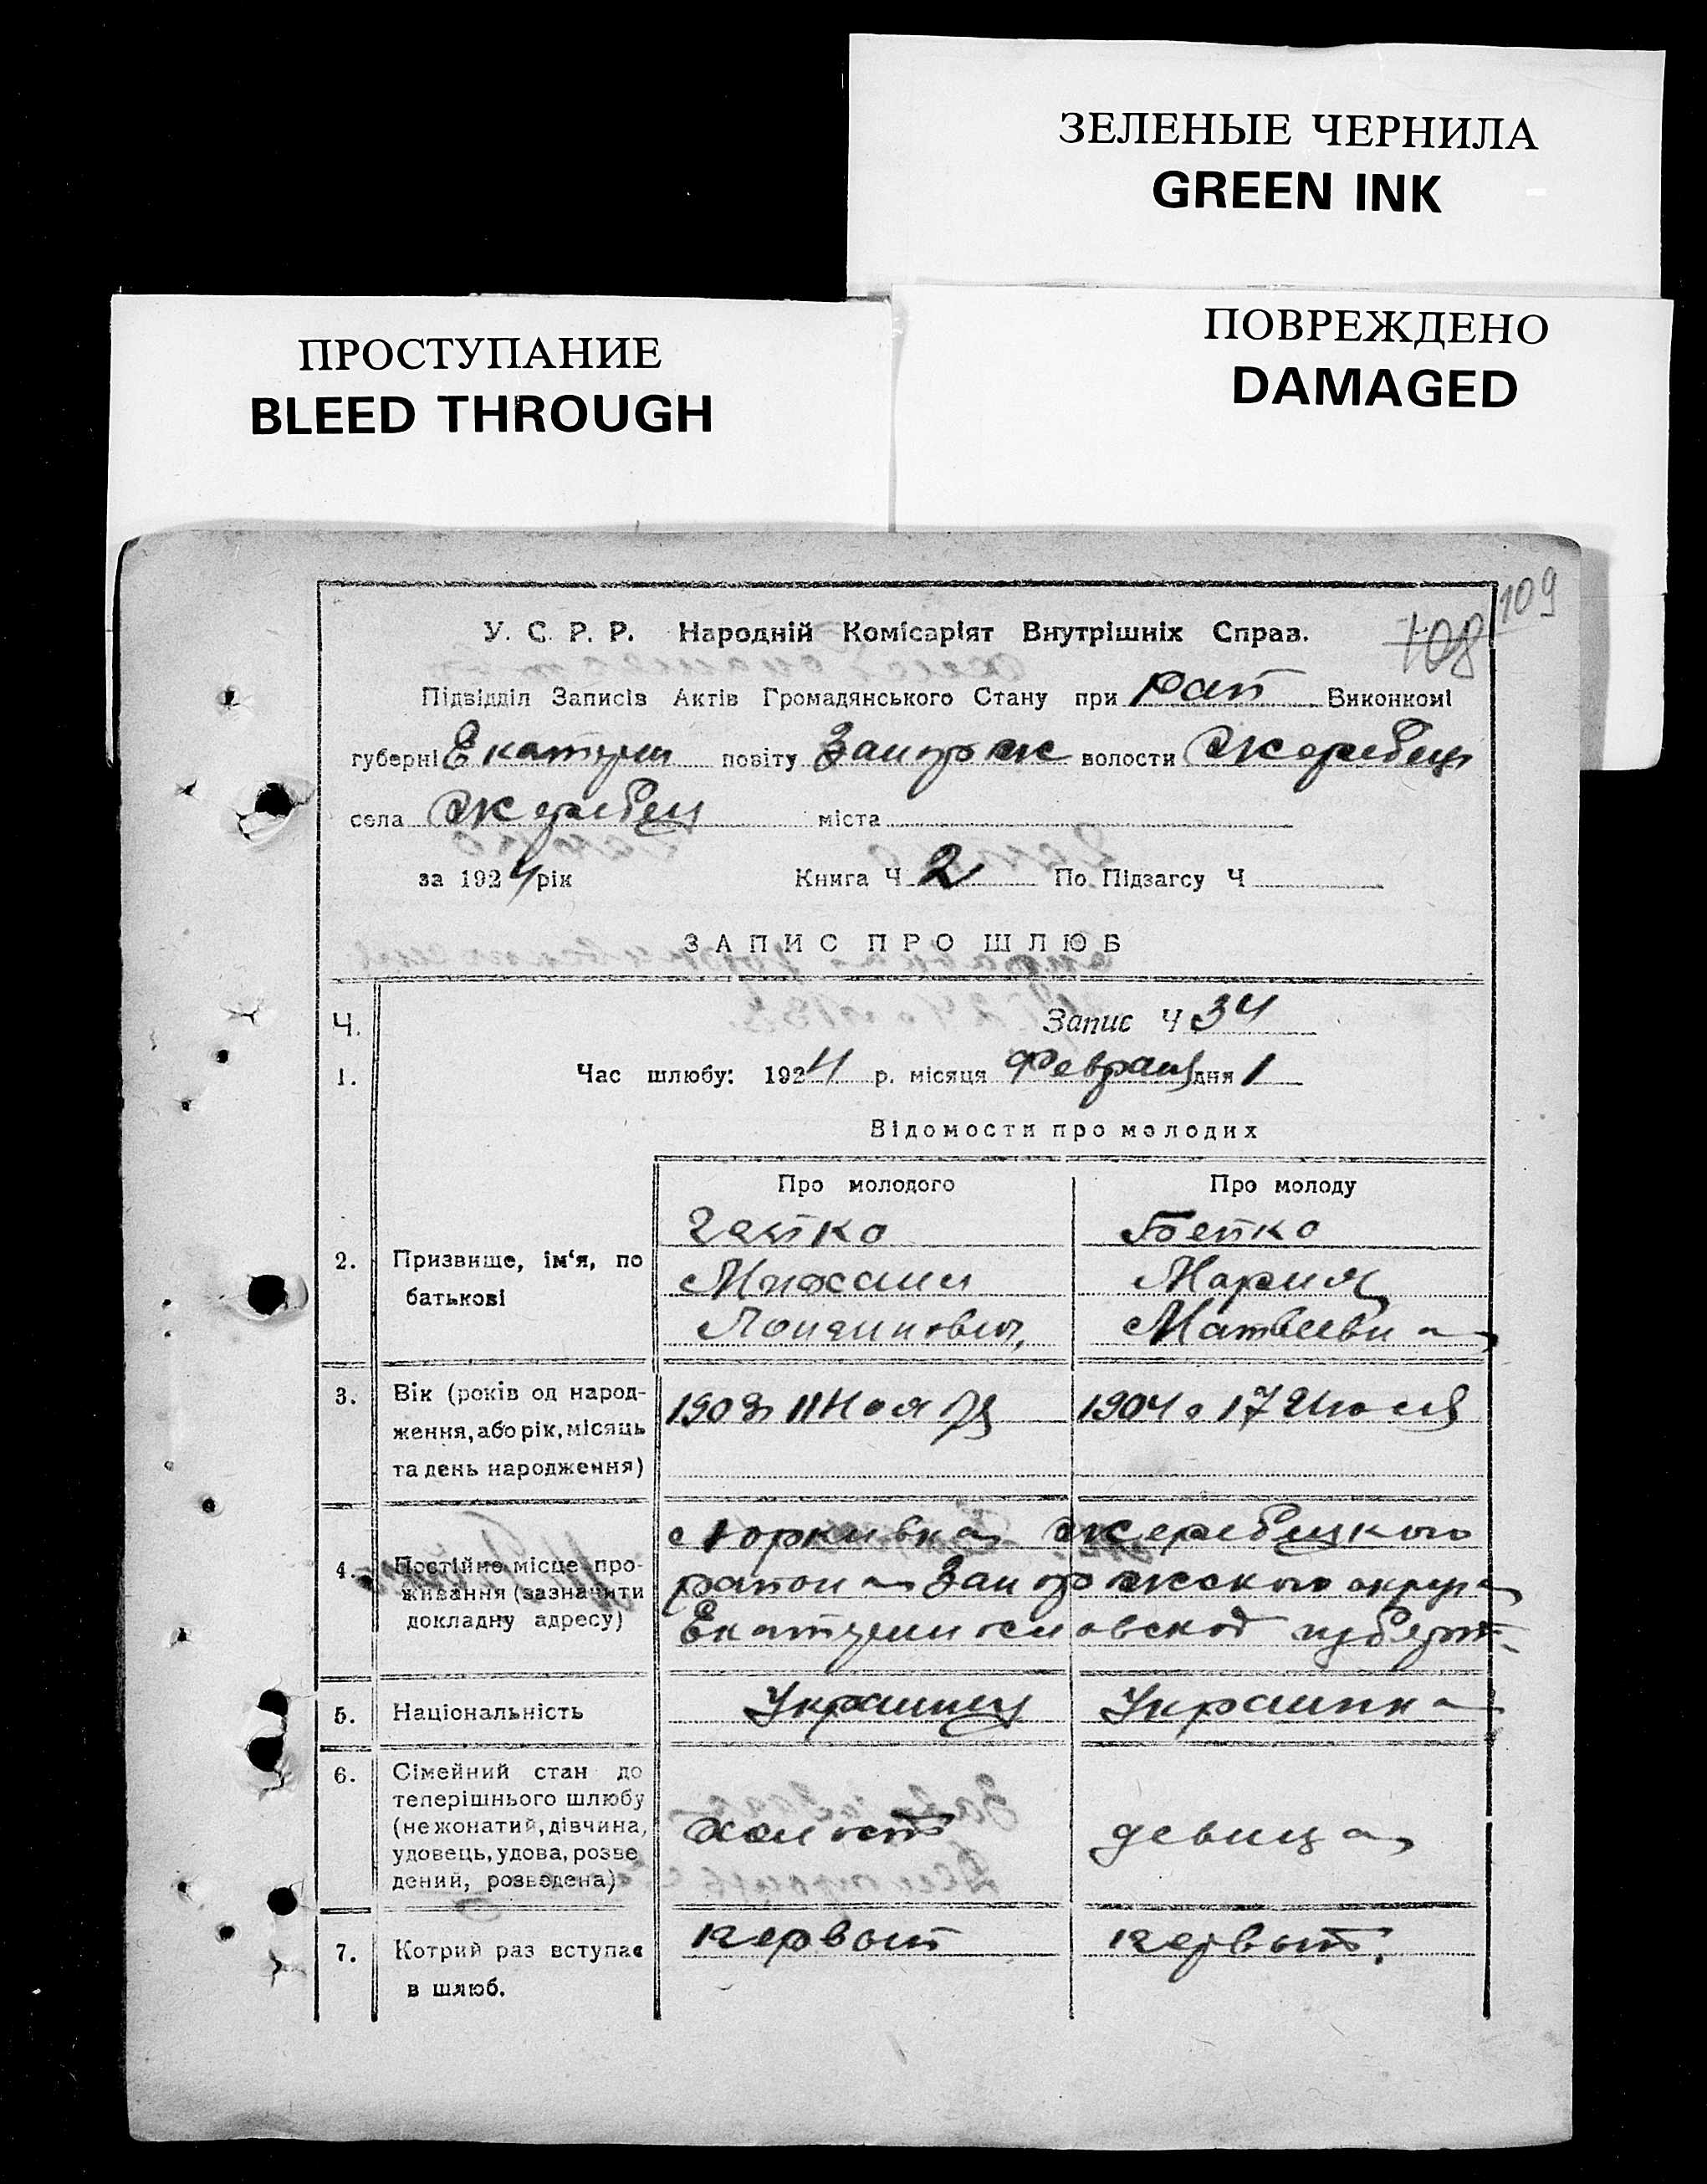 ЗЕЛЕНЫЕ ЧЕРНИЛА
GREEN INK
ПРОСТУПАНИЕ
BLEED THROUGH
ПОВРЕЖДЕНО
DAMAGED
109
108
У. С. Р. Р. Народній Комісаріят Внутрішніх Справ.
Підвідділ Записів Актів Громадянського Стану при Рай Виконкомі
губерні Екатерин повіту Запорож волости Жеребец
села Жеребец міста
за 1924 рік Книга Ч 2 По Підзагсу Ч
ЗАПИС ПРО ШЛЮБ
Ч. Запис Ч 34
1. Час шлюбу: 1924 р. місяця Февраля дня 1
Відомости про молодих
Про молодого Про молоду
Бойко
2. Призвище, ім‘я, по Михаил Мария
батькові Матвеевна
3. Вік (років од народ- 11 Ноября 1904 г 17 Июля
ження, або рік, місяць
та день народження)
Жеребецкого
4. Постійне місце про- района Запорожского округа
живання (зазначити
докладну адресу) Екатеринославской губерн
5. Національність Украинец Украинка
6. Сімейний стан до
теперішнього шлюбу
(нежонатий, дівчина, холост девица
удовець, удова, розве
дений, розведена)
7. Котрий раз вступає первый первый
в шлюб.